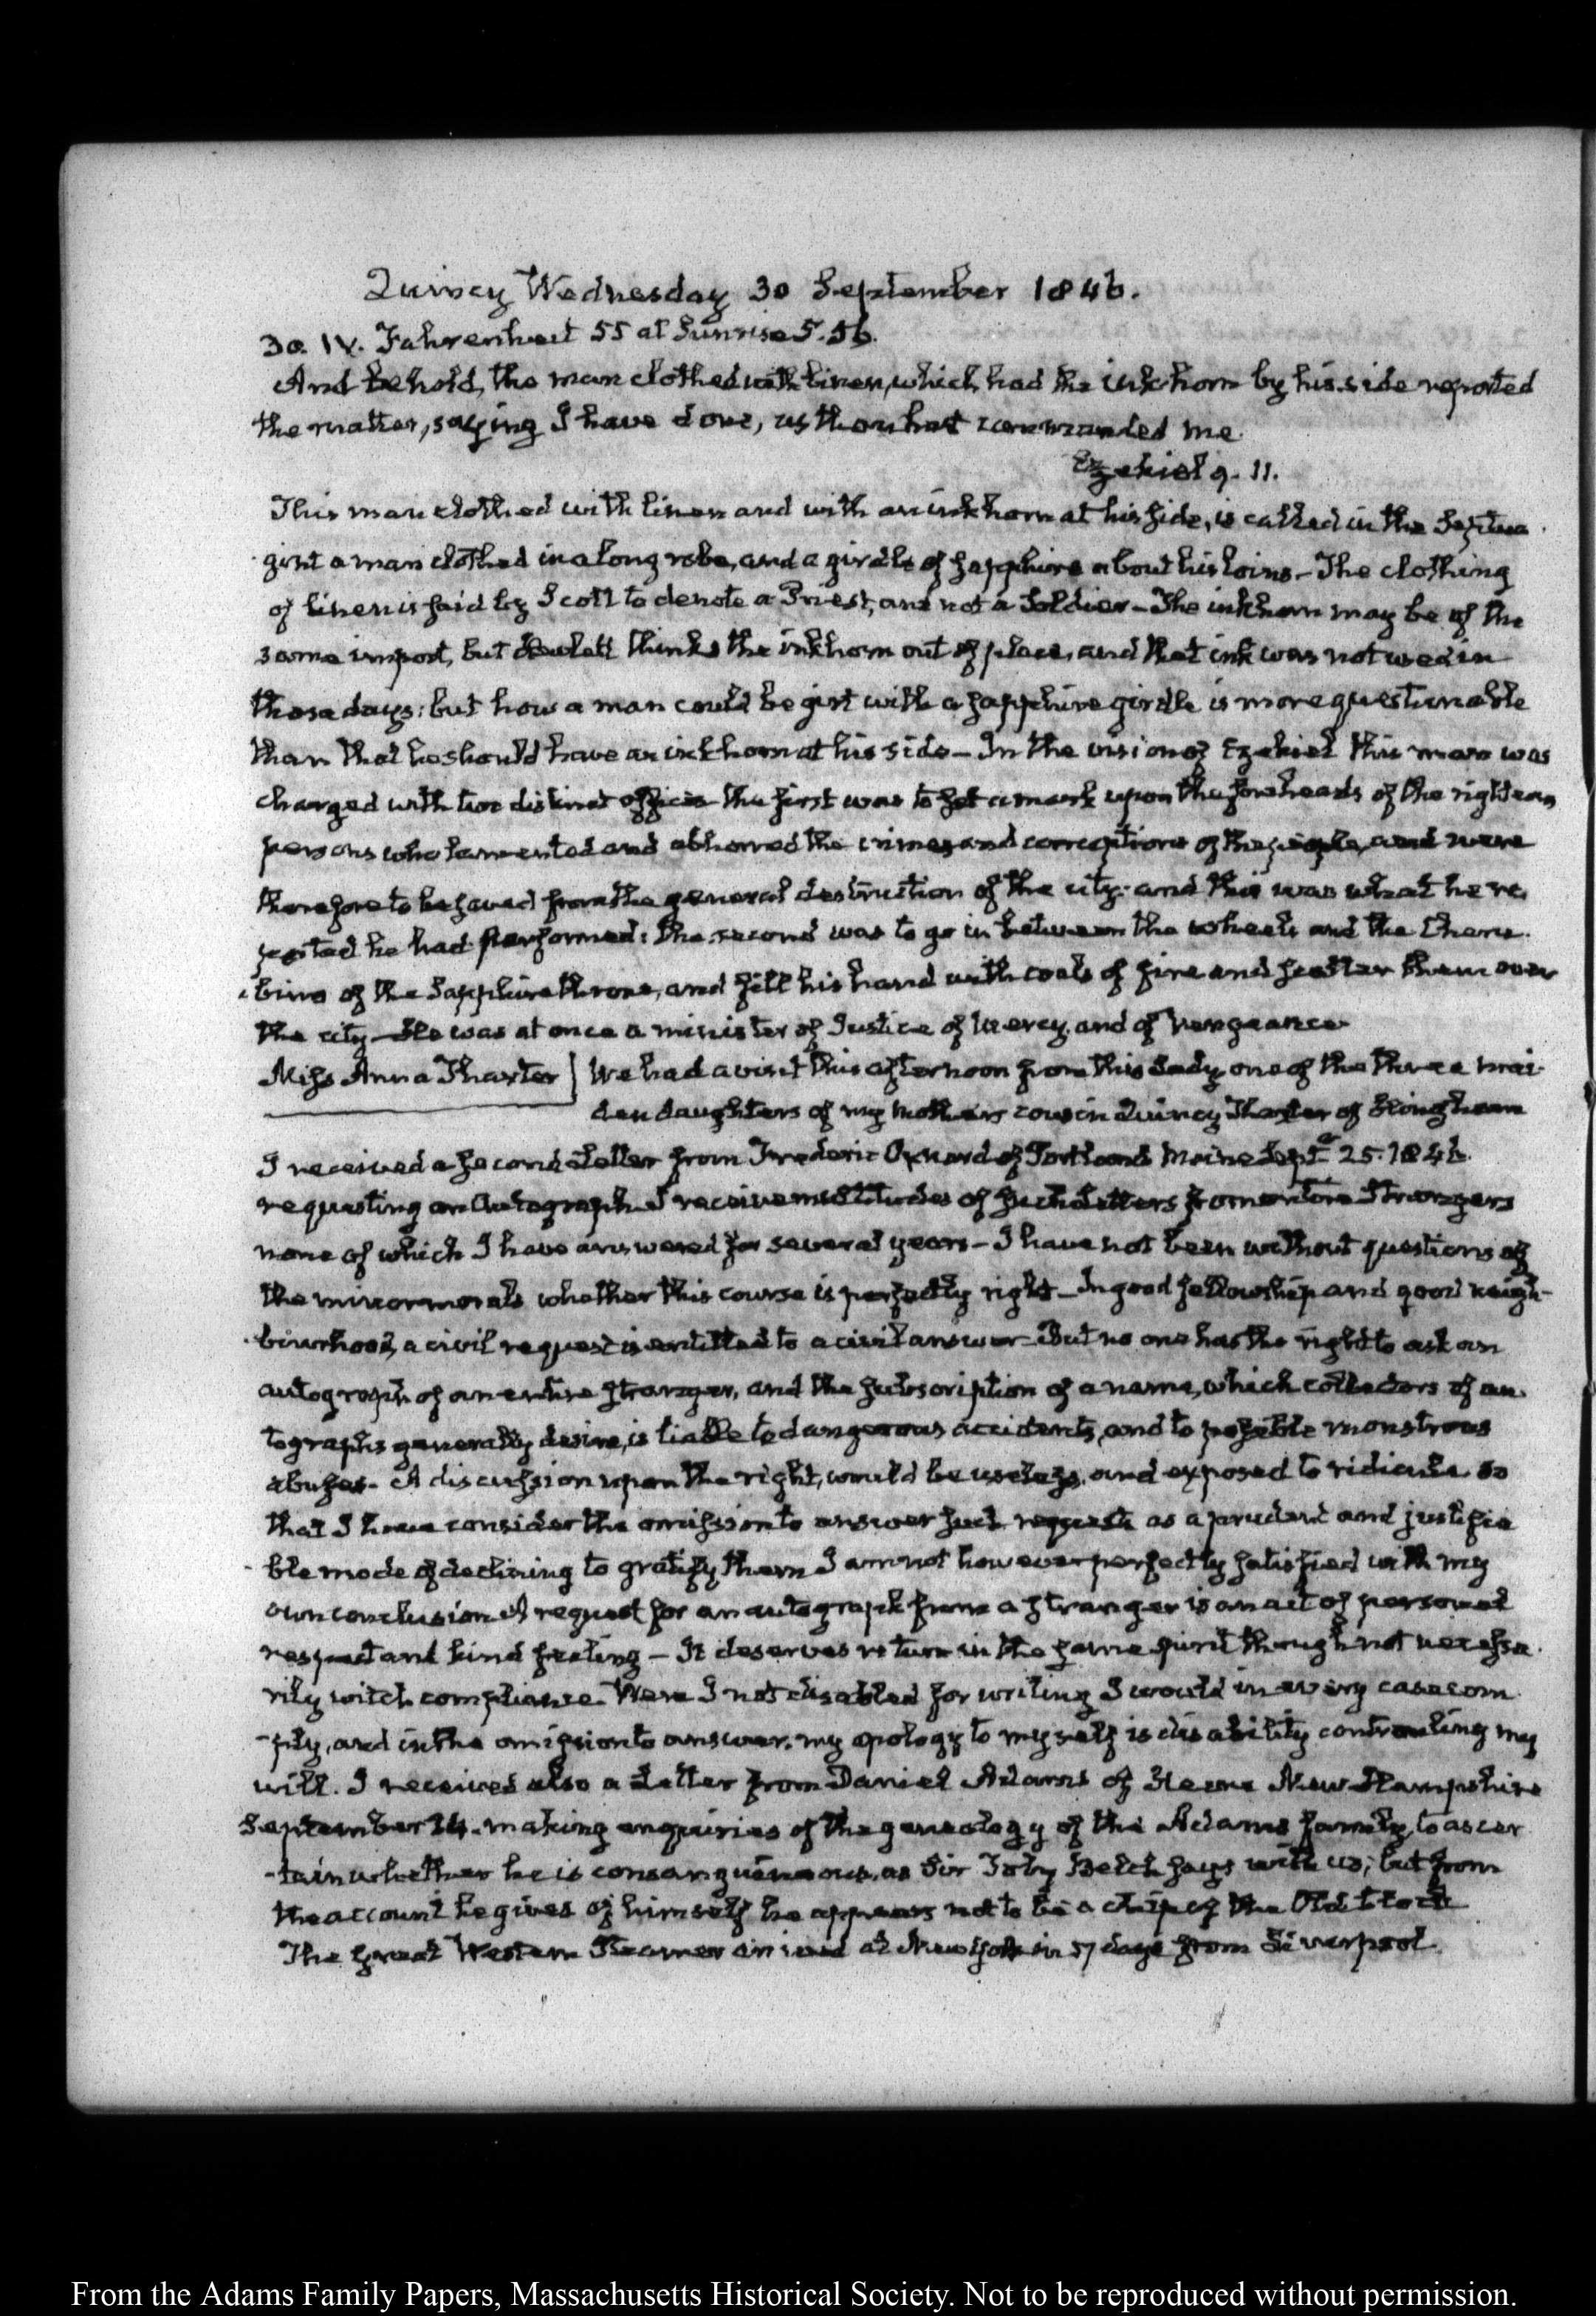 Quincy Wednesday 30 September 1846.
30. IV. Fahrenheit 55 at Sunrise 5.56.
And behold, the man clothed with linen, which had the inkhorn by his side reported
the matter, saying I have done, as thou hast commanded me.
Ezekiel 9. 11.
This man clothed with linen and with an inkhorn at his side, is called in the Septua
gint a man clothed in a long robe, and a girdle of sapphire about his loins — The clothing
of linen is said by Scott to denote a Priest, and not a Soldier — The inkhorn may be of the
same import, but thinks the inkhorn out of place, and that ink was not used in
those days: but how a man could be girt with a sapphire girdle is more questionable
than that he should have an inkhorn at his side — In the vision of Ezekiel this man was
charged with two distinct offices the first was to set a mark upon the foreheads of the righteous
persons who lamented and abhorred the crimes and corruptions of the people, and were
therefore to be saved from the general destruction of the city: and this was what he re
ported he had performed: the second was to go in between the wheels and the Cheru-
-bims of the Sapphire throne, and fill his hand with coals of fire and scatter them over
the city — He was at once a minister of Justice of Mercy, and of Vengeance
Miss Anna Thaxter] We had a visit this afternoon from this Lady one of the three mai-
den daughters of my mothers cousin Quincy Thaxter of Hingham
I received a second Letter from Frederic of Portland Maine Septr 25. 1846.
requesting an Autograph. I receive multitudes of such Letters from entire Strangers
none of which I have answered for several years — I have not been without questions of
the minor morals whether this course is perfectly right — In good fellowship and good neigh-
-bourhood, a civil request is entitled to a civil answer — But no one has the right to ask an
autograph of an entire stranger, and the subscription of a name, which collectors of au-
tographs generally desire, is liable to dangerous accidents, and to possible monstrous
abuses — A discussion upon the right, would be useless, and exposed to ridicule so
that I have consider the omission to answer such requests as a prudent and justifia
-ble mode of declining to gratify them I am not however perfectly satisfied with my
own conclusion A request for an autograph from a stranger is an act of personal
respect and kind feeling — It deserves return in the same spirit though not necessa-
rily with compliance. Were I not disabled for writing I would in every case com-
-ply, and in the omission to answer, my apology to myself is disability controuling my
will. I received also a Letter from Daniel Adams of Keene New Hampshire
September 24. making enquiries of the geneology of the Adams family, to ascer
-tain whether he is consanguineous, as Sir Toby Belch says with us; but from
the account he gives of himself he appears not to be a chip of the Old block
The Great Western Steamer arrived at New York in 17 days from Liverpool.
From the Adams Family Papers, Massachusetts Historical Society. Not to be reproduced without permission.